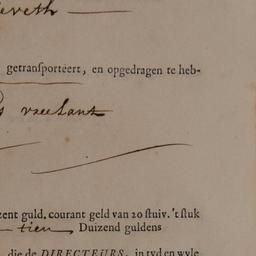 eveth
getranſporteert, en opgedragen te heb-
vacant
zent guld. courant geld van 20 ſtuiv. 't ſtuk
tien Duizend guldens
die de DIRECTEURS, in tyd en wyle